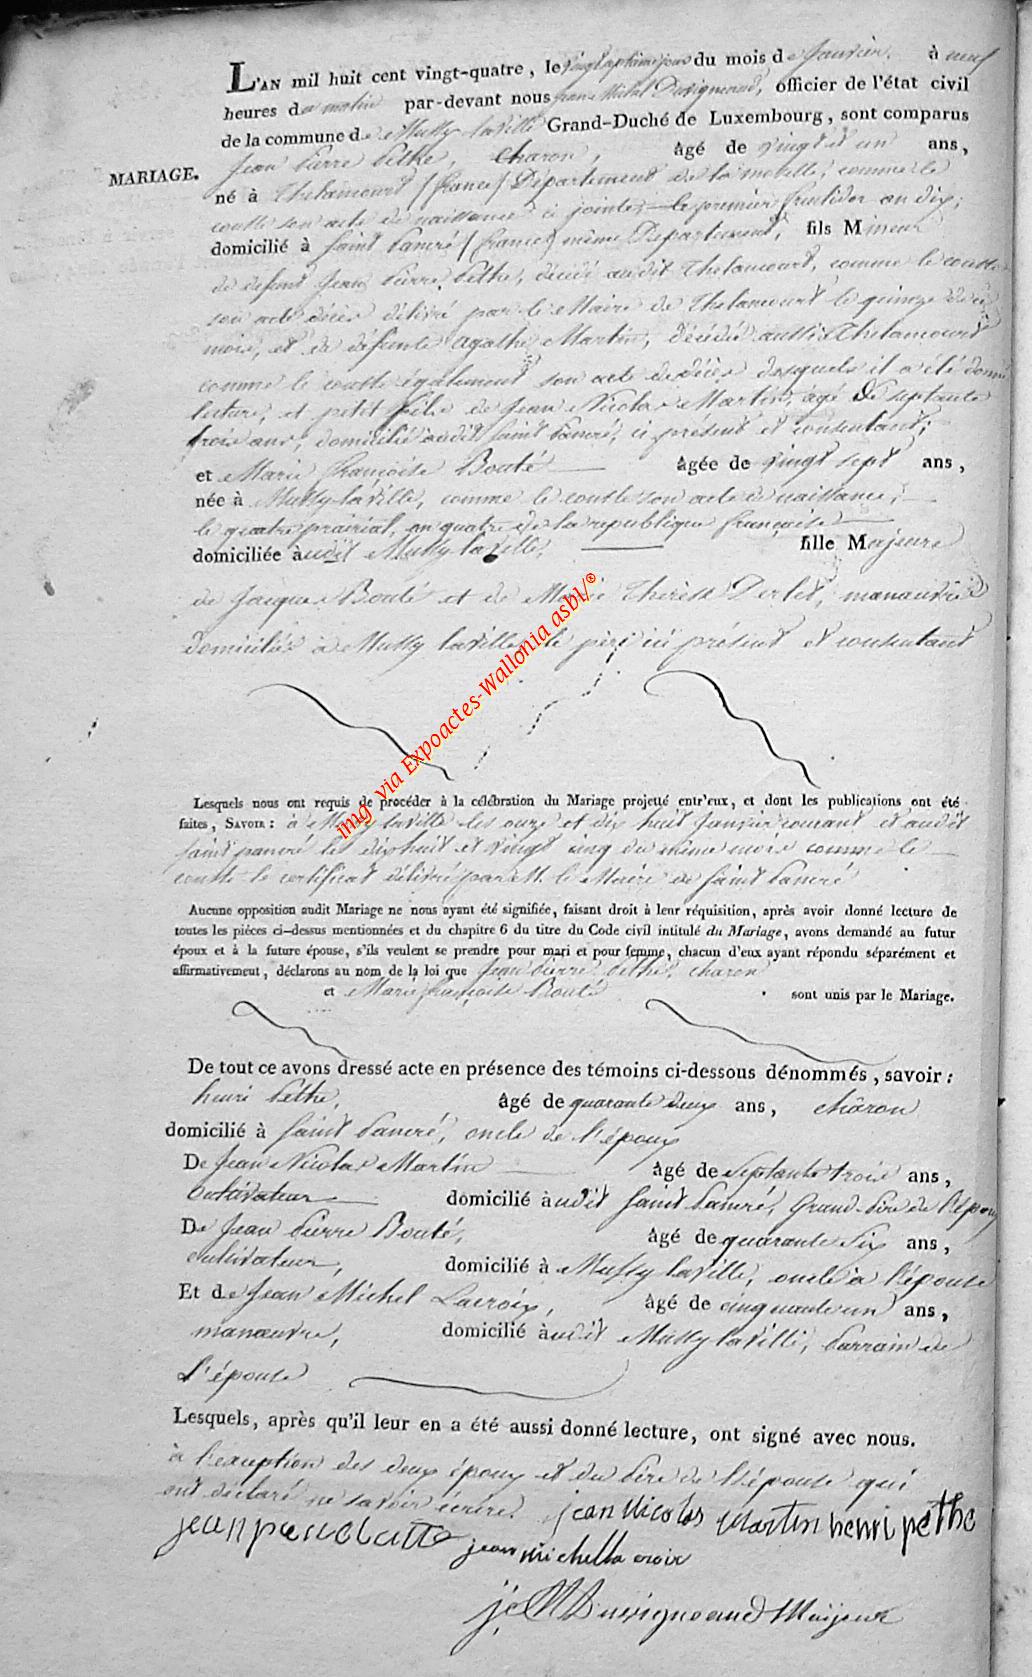 L'AN mil huit cent vingt-quatre, le vingt septième jour du mois de Janvier à neuf
heures du matin par-devant nous jean Michel officier de l'état civil
de la commune de Mussy laville Grand-Duché de Luxembourg, sont comparus
MARIAGE.
Jean Pierre Pethe, charon, âgé de vingt et un ans,
né à (france) Département de la moselle, comme le
conste son acte de naissance ci jointe, le premier fructidor an dix;
domicilié à Saint Pancré (france) même Departement, fils Mineur
de defunt Jean Pierre Pethe, décédé audit Thelancourt, comme le conste
son acte décès délivré par le Maire de Thelancourt le quinze de ce
mois, et de défunte Agathe Martin, décédée aussi à Thelancourt
comme le conste également son acte de décès desquels il a été donné
lecture, et petit fils de Jean Nicolas Martin, âgé de septante
trois ans, domicilié audit Saint Pancré, ci présent et consentant;
et Marie françoise Bouté âgée de vingt sept ans,
née à Mussy laville, comme le conste son acte de naissance,
le quatre prairial, an quatre de la republique française
domiciliée audit Mussy laville, fille Majeure
de Jacques Bouté et de Marie Thérèse Perlet, manœuvre
domiciliés à Mussy laville, le père ici présent et consentant
img via Expoactes-Wallonia asbl/®
Lesquels nous ont requis de procéder à la célébration du Mariage projetté entr'eux, et dont les publications ont été
faites, SAVOIR: à Mussy laville les onze et dix huit Janvier courant et audit
Saint pancré le dixhuit et vingt cinq du même mois comme le
conste le certificat délivré par M. le Maire de Saint Pancré
Aucune opposition audit Mariage ne nous ayant été signifiée, faisant droit à leur réquisition, après avoir donné lecture de
toutes les pièces ci-dessus mentionnées et du chapitre 6 du titre du Code civil intitulé du Mariage, avons demandé au futur
époux et à la future épouse, s'ils veulent se prendre pour mari et pour femme, chacun d'eux ayant répondu séparément et
affirmativement, déclarons au nom de la loi que Jean Pierre Pethe, charon
et Marie françoise Bouté sont unis par le Mariage.
De tout ce avons dressé acte en présence des témoins ci-dessous dénommés, savoir:
henri Pethe, âgé de quarante deux ans, charon
domicilié à Saint Pancré, oncle de l'époux
De Jean Nicolas Martin âgé de septante trois ans,
cultivateur domicilié audit Saint Pancré, Grand-Père de l'époux
De Jean Pierre Bouté, âgé de quarante six ans,
cultivateur, domicilié à Mussy laville, oncle à l'épouse
Et de Jean Michel Lacroix, âgé de cinquante un ans,
manœuvre, domicilié audit Mussy laville, Parrain de
l'épouse
Lesquels, après qu'il leur en a été aussi donné lecture, ont signé avec nous.
à l'exception des deux époux et du Père de l'épouse qui
ont déclaré ne savoir écrire.
jean Nicolas Martin henri pethe
jean michel la croix